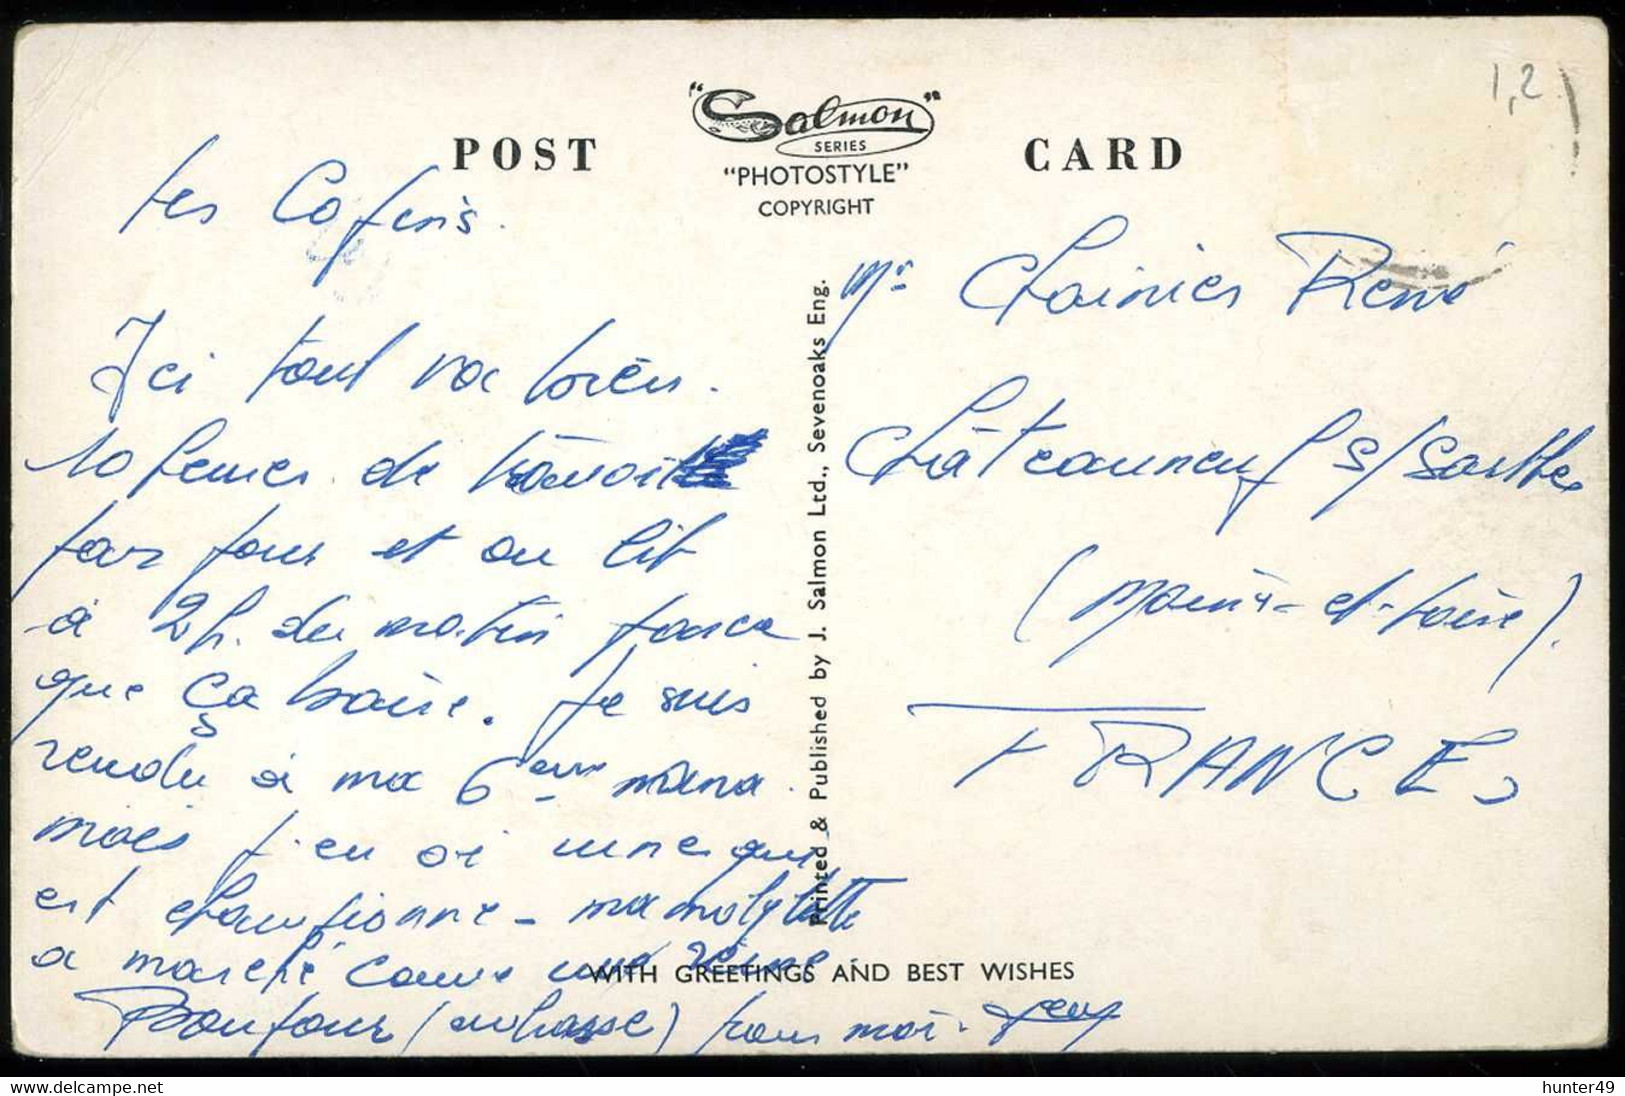 1,2
"Salmon"
SERIES
POST CARD
"PHOTOSTYLE"
COPYRIGHT
les Cop
Ici tout va bien.
10 heures de travail
par jour et au lit
à 2h. du matin parce
que ça barde. Je suis
rendu à ma 6eme nana.
mais j'en ai une qui
est championne - ma mobylette
a marché comme une reine.
Bonjour (embrasse) pour moi.
Mr Chainier René
Châteauneuf s/Sarthe
(Maine-et-Loire).
FRANCE
Printed & Published by J. Salmon Ltd., Sevenoaks Eng.
WITH GREETINGS AND BEST WISHES
delcampe.net
hunter49